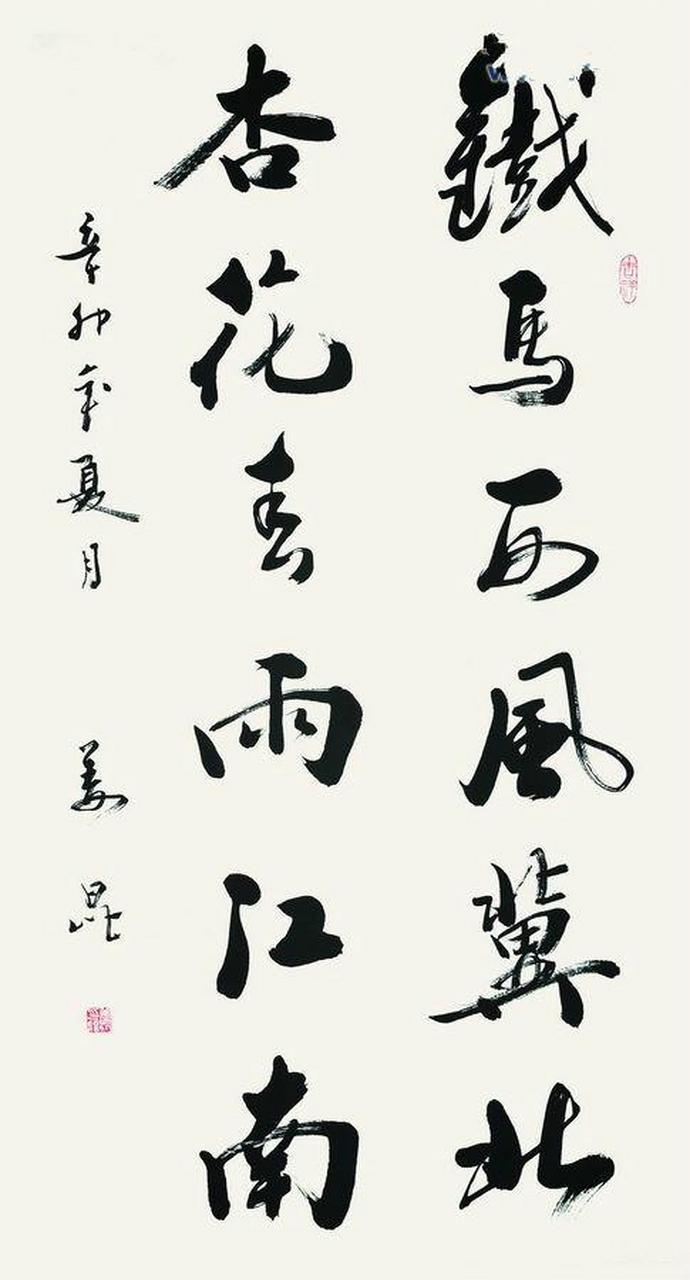 鐵馬西風冀北
杏花春雨江南
辛卯年夏月 姜昆